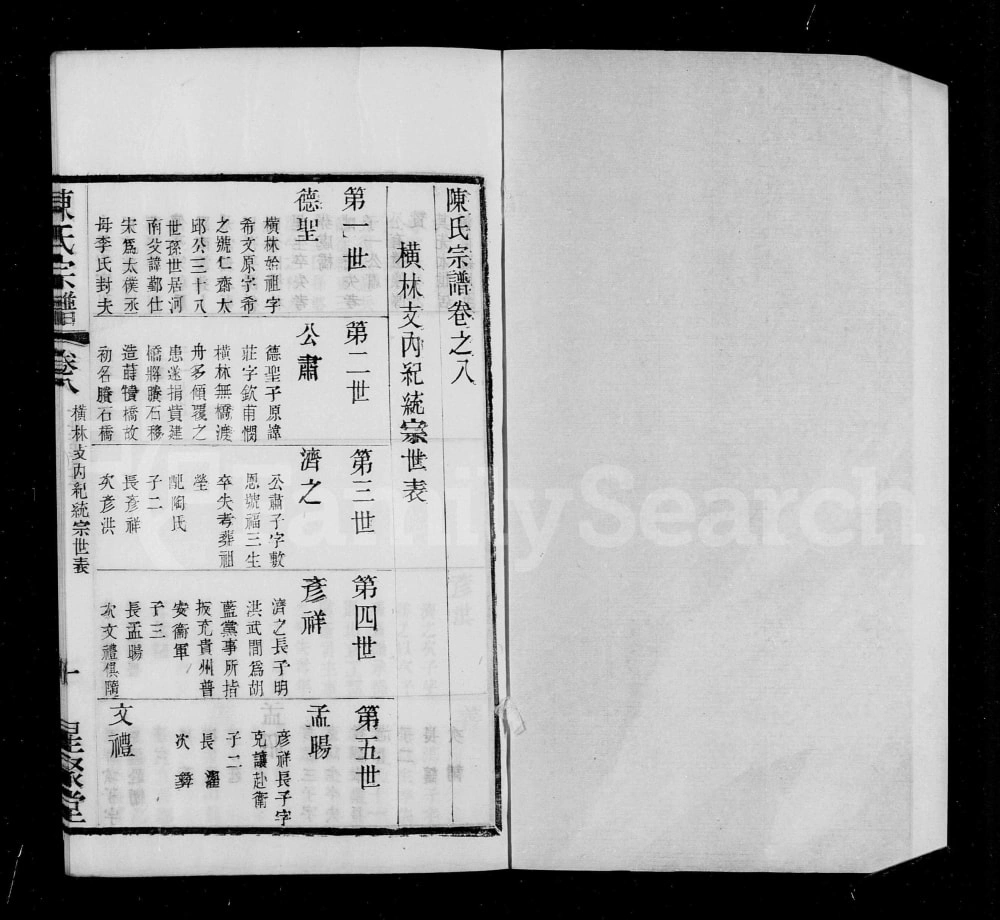 陳氏宗譜卷之八
橫林支內紀統宗世表
第一世
德聖
橫林始祖字
希文原字希
之號仁齋太
邱公三十八
世孫世居河
南父諱鄞仕
宋爲太僕丞
母李氏封夫
第二世
公肅
德聖子原諱
莊字欽甫憫
橫林無橋渡
舟多傾覆之
患遂捐貲建
橋將賸石移
造蒔犢橋故
初名賸石橋
第三世
濟之
公肅子字敷
恩號福三生
卒失考葬祖
塋
配陶氏
子二
長彥祥
次彥洪
第四世
彥祥
濟之長子明
洪武間爲胡
藍黨事所指
扳充貴州普
安衞軍
子三
長孟暘
次文禮俱隨
第五世
孟暘
彥祥長子字
克讓赴衞
子二
長 濯
次 彝
文禮
陳氏宗譜
卷八
橫林支內紀統宗世表
一
星聚堂
FamilySearch